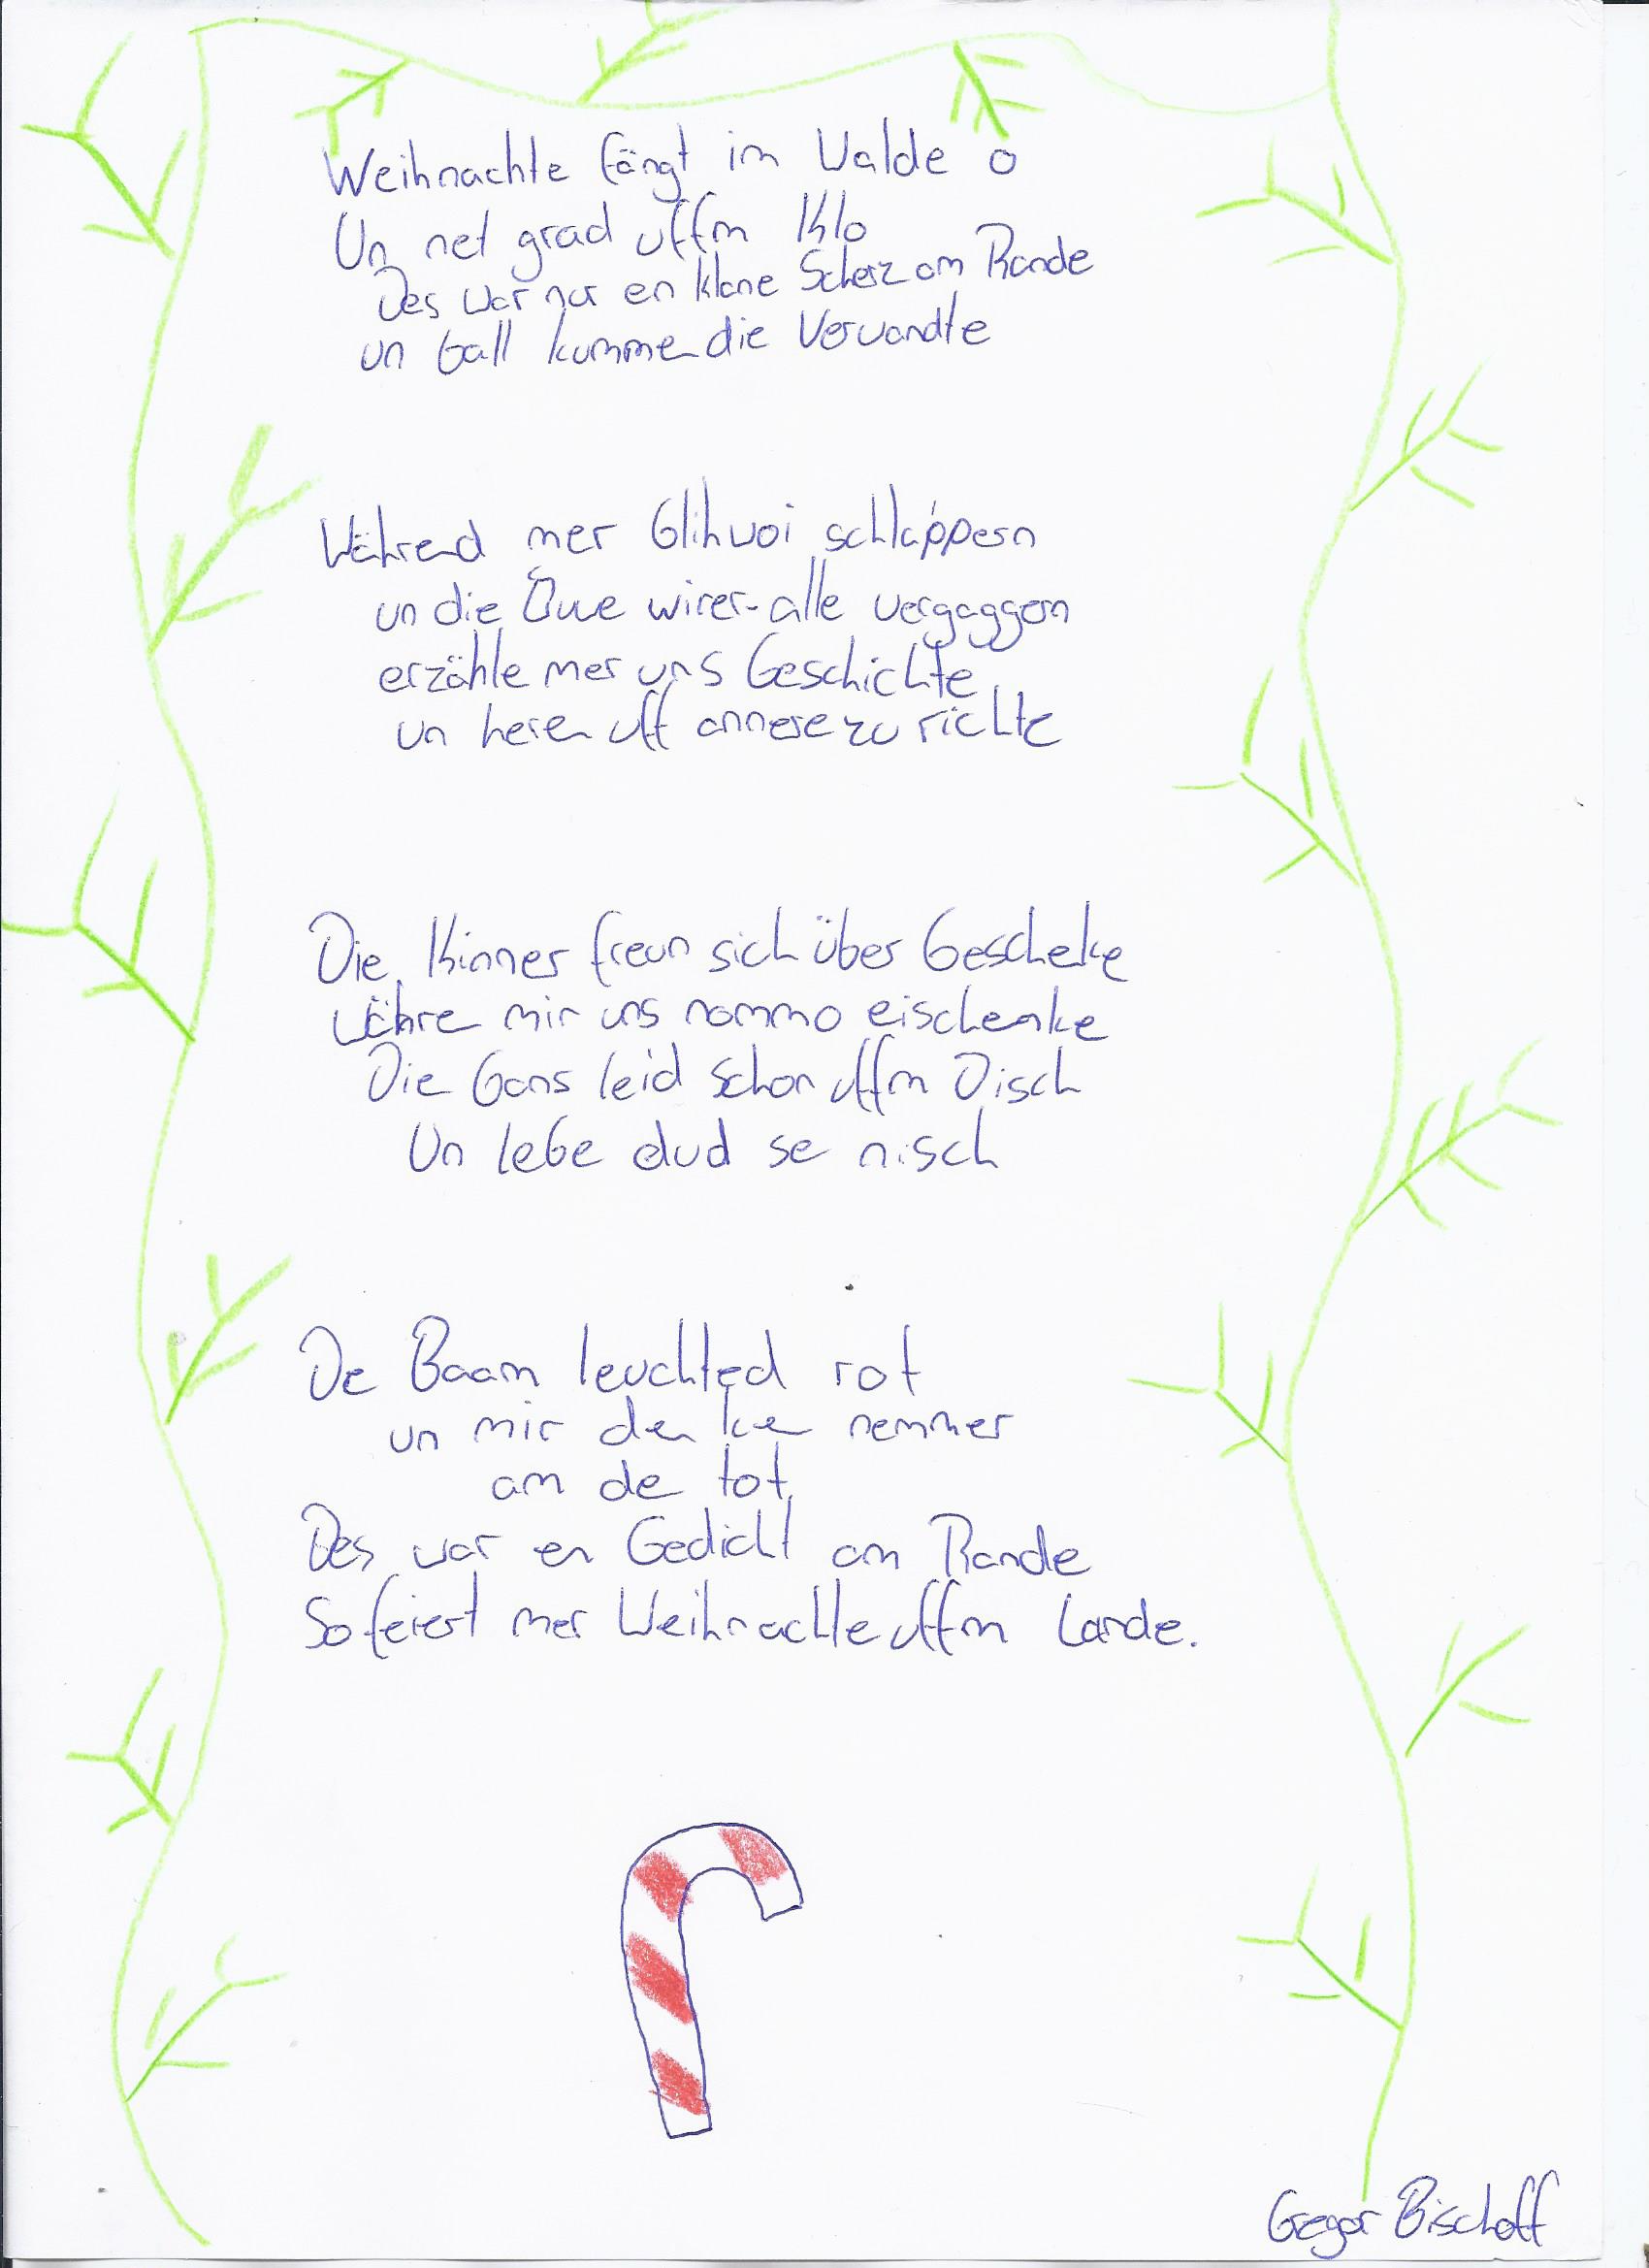 Weihnachte fängt im Walde o
Un net grad uffm Klo
Des war nur en klane Scherz am Rande
un ball kumme die Verwandte
Während mer Glihwoi schläppern
un die Öwe wirer alle vergaggern
erzähle mer uns Geschichte
un heren uff annere zu richte
Die Kinner freun sich über Gescheke
währe mir uns nommo eischenke
Die Gans leid schon uffm Disch
Un lebe dud se nisch
De Baam leuchted rot
un mir denke nemmer
am de tot
Des war en Gedicht am Rande
So feiert mer Weihnachte uffm Lande.
Gregor Bischoff